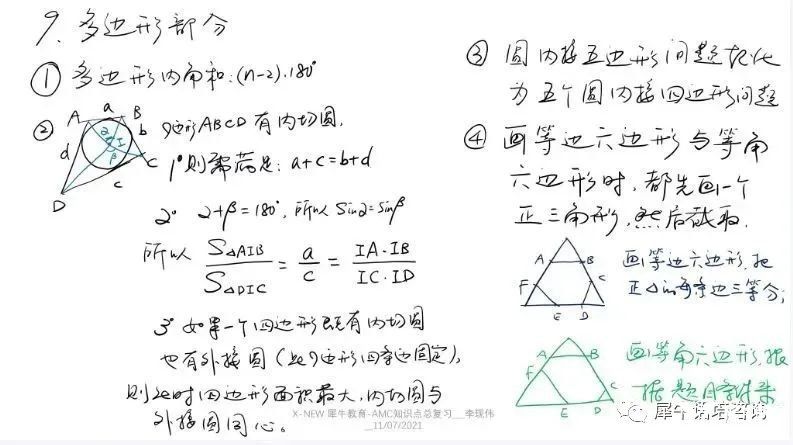 9、多边形部分
① 多边形内角和:(n-2)·180°
②
A a B
b
d
α I
β
C
c
D
四边形ABCD有内切圆,
1°则需满足:a+c=b+d
2° α+β=180°,所以sinα=sinβ
所以 S△AIB/S△DIC = a/c = IA·IB/IC·ID
3°如果一个四边形既有内切圆
也有外接圆(此四边形四条边固定),
则此时四边形面积最大,内切圆与
外接圆同心。
③ 圆内接五边形问题转化
为五个圆内接四边形问题
④ 画等边六边形与等角
六边形时,都先画一个
正三角形,然后截取.
A B
F C
E D
画等边六边形,把
正△的每条边三等分;
A B
F
C
E D
画等角六边形,根
据题目条件来
X-NEW 犀牛教育-AMC知识点总复习__李现伟
__11/07/2021